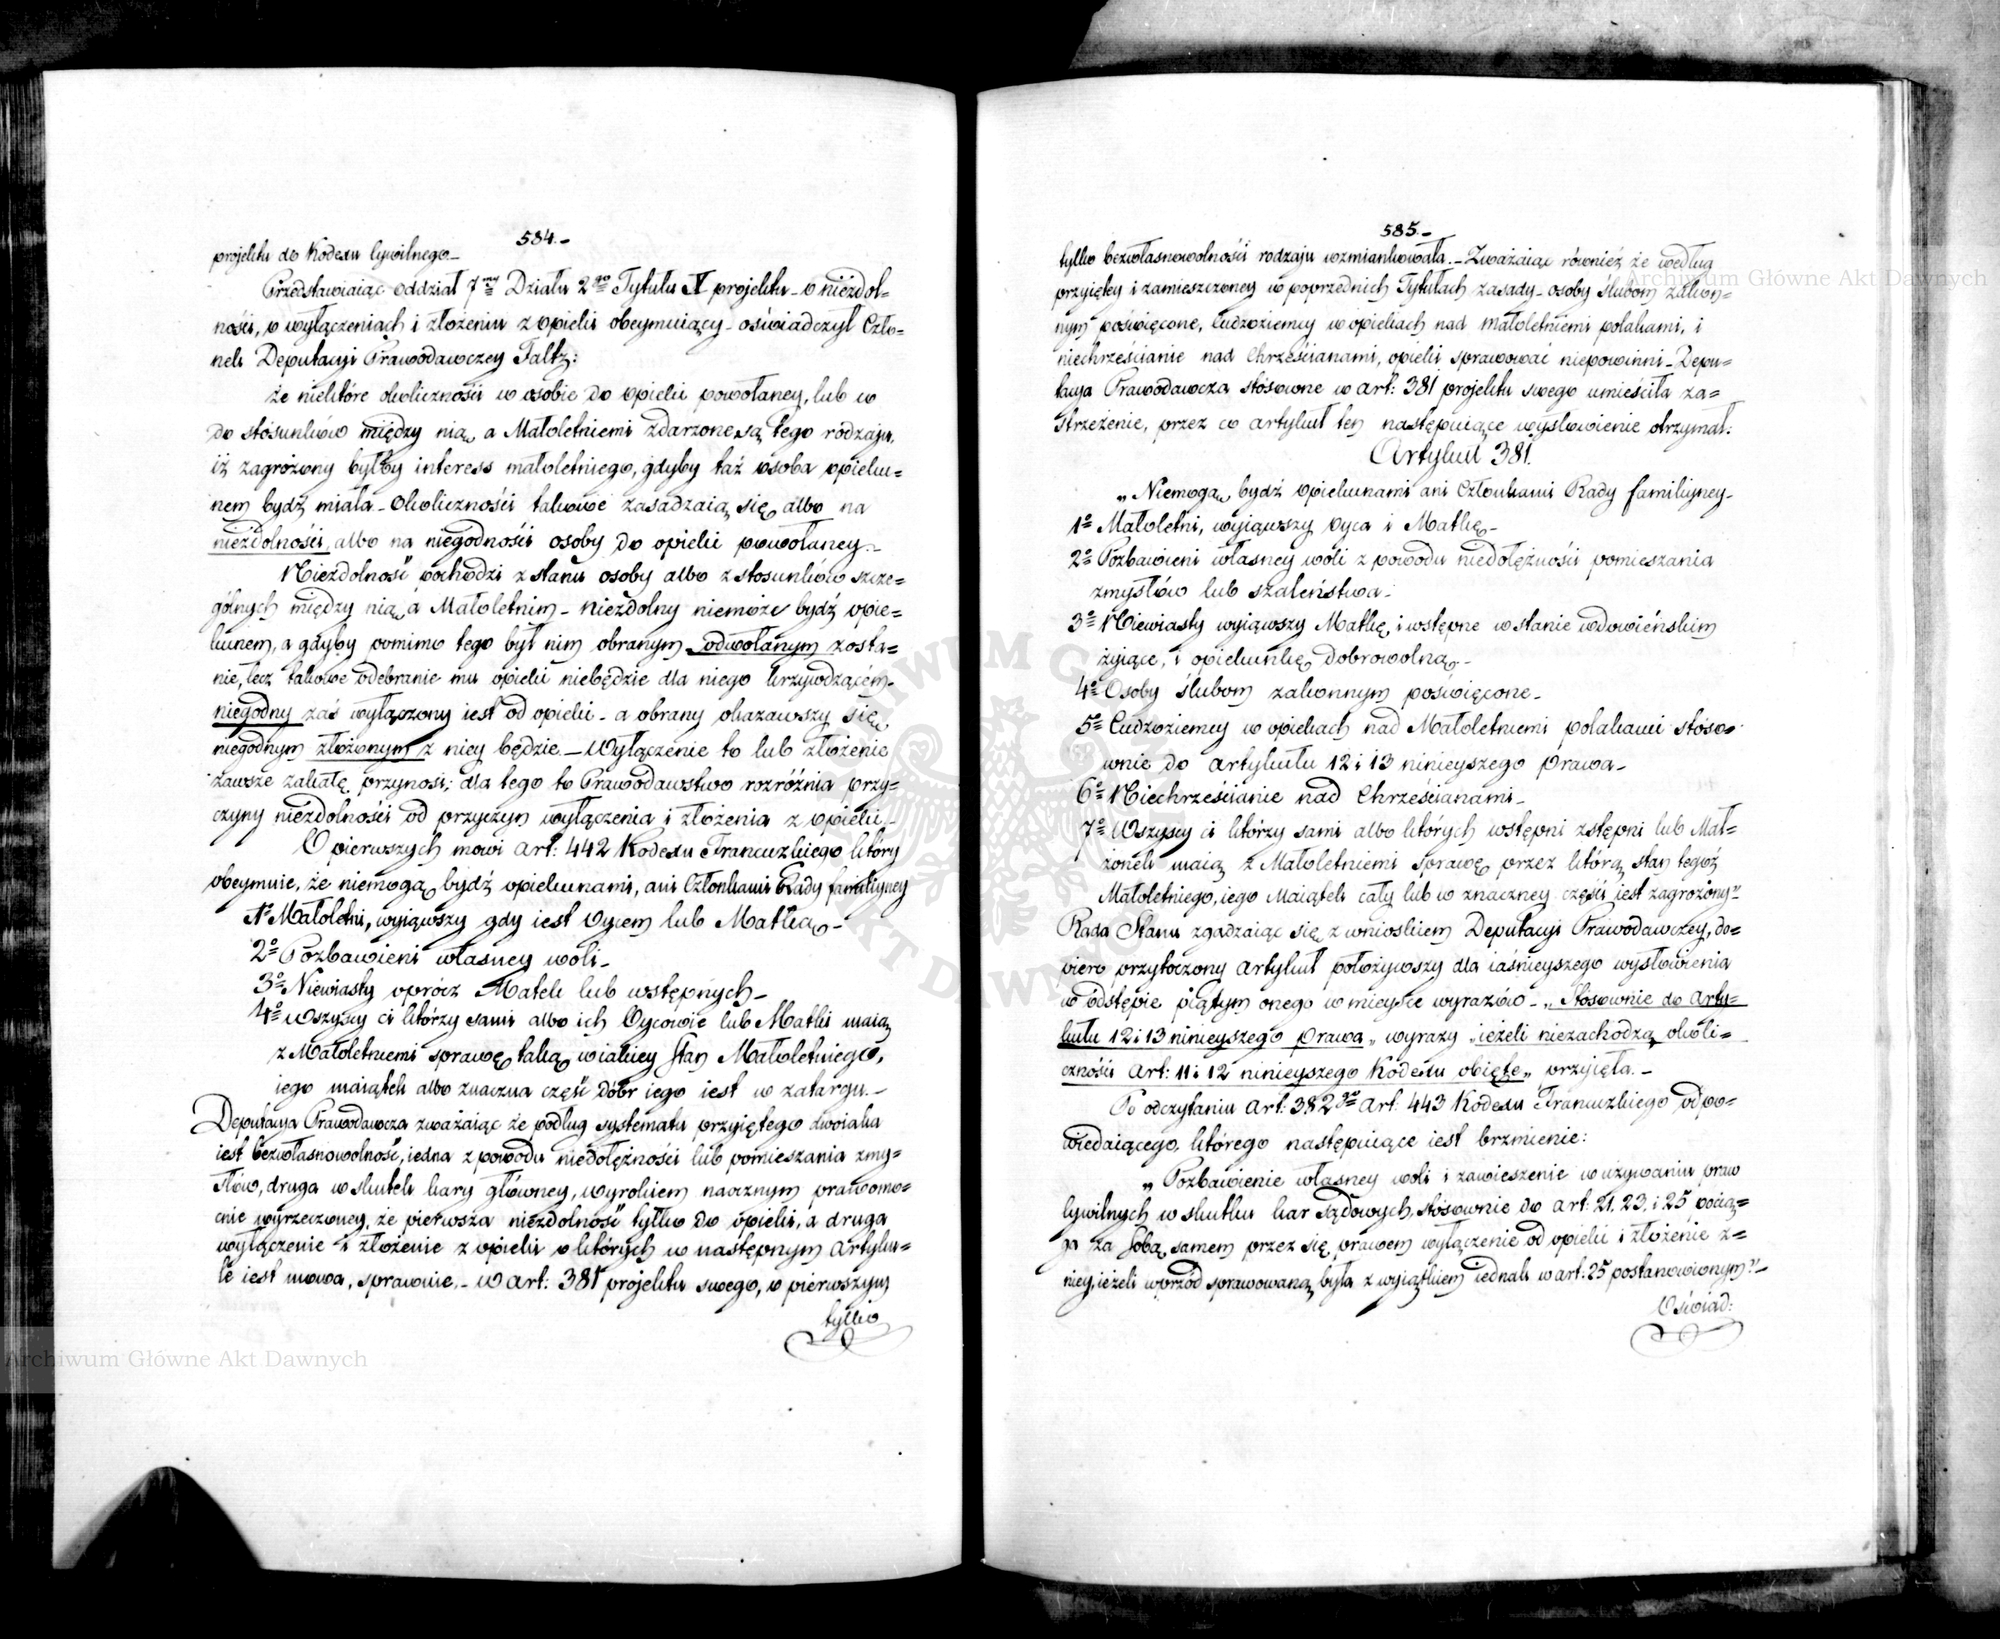 584.-
projektu do Kodexu Cywilnego_
Przedstawiaiąc oddział 7my Działu 2go Tytułu X projektu_ o niezdol=
ności, o wyłączeniach i złożeniu z opieki obeymuiący_ oświadczył Czło=
nek Deputacyi Prawodawczey Faltz:
że niektóre okoliczności w osobie do opieki powołaney, lub w
do stósunków między nią a Małoletniemi zdarzone są tego rodzaju
iż zagrożony byłby interess małoletniego, gdyby taż osoba opieku=
nem bydź miała_ Okoliczności takowe zasadzaią się albo na
niezdolności, albo na niegodności osoby do opieki powołaney._
Niezdolność pochodzi z stanu osoby albo z stosunków szcze=
gólnych między nią a Małoletnim_ Niezdolny niemoże bydź opie=
kunem, a gdyby pomimo tego był nim obranym odwołanym zosta=
nie, lecz takowe odebranie mu opieki niebędzie dla niego krzywdzącém_
niegodny zaś wyłączony iest od opieki_ a obrany okazawszy się
niegodnym złożonym z niey będzie_ Wyłączenie to lub złożenie
zawsze zakałę przynosi; dla tego to Prawodawstwo rozróżnia przy=
czyny niezdolności od przyczyn wyłączenia i złożenia z opieki._
O pierwszych mowi Art: 442 Kodexu Francuzkiego który
obeymuie, że niemogą bydź opiekunami, ani Członkami Rady familiyney
1o Małoletni, wyiąwszy gdy iest Oycem lub Matką_
2o Pozbawieni własney woli_
3o Niewiasty oprócz Matek lub wstępnych_
4o Wszyscy ci którzy sami albo ich Oycowie lub Matki maią
z Małoletniemi sprawę taką w iakiey stan Małoletniego,
iego maiątek albo znaczna część dóbr iego iest w zatargu._
Deputacya Prawodawcza zważaiąc że podług systematu przyiętego dwoiaka
iest bezwłasnowolność, iedna z powodu niedołężności lub pomieszania zmy=
słów, druga w skutek kary główney, wyrokiem naocznym prawomo=
cnie wyrzeczoney, że pierwsza niezdolność tylko do opieki, a druga
wyłączenie i złożenie z opieki o których w następnym Artyku=
le iest mowa, sprawuie,_ w Art: 381 projektu swego, o pierwszym
tylko
585.-
tylko bezwłasnowolności rodzaju wzmiankowała._ Zważaiąc również że według
przyiętey i zamieszczoney w poprzednich Tytułach zasady_ osoby ślubom zakon=
nym poświęcone, Cudzoziemcy w opiekach nad małoletniemi polakami, i
niechrześcianie nad Chrześcianami, opieki sprawować niepowinni_ Depu=
tacya Prawodawcza stósowne w Art: 381 projektu swego umieściła za=
strzeżenie, przez co artykuł ten następuiące wysłowienie otrzymał:
Artykuł 381.
„Niemogą bydź opiekunami ani Członkami Rady familiyney_
1o Małoletni, wyiąwszy Oyca i Matkę_
2o Pozbawieni własney woli z powodu niedołężności pomieszania
zmysłów lub szaleństwa_
3o Niewiasty wyiąwszy Matkę, i wstępne w stanie wdowieńskim
żyiące, i opiekunkę dobrowolną_
4o Osoby ślubom zakonnym poświęcone_
5o Cudzoziemcy w opiekach nad Małoletniemi polakami stóso=
wnie do artykułu 12 i 13 ninieyszego prawa_
6o Niechrześcianie nad Chrześcianami_
7o Wszyscy ci którzy sami albo których wstępni zstępni lub Mał=
żonek maią z Małoletniemi sprawę przez którą stan tegoż
Małoletniego, iego Maiątek cały lub w znaczney części iest zagrożony”
Rada Stanu zgadzaiąc się z wnioskiem Deputacyi Prawodawczey, do=
piero przytoczony artykuł położywszy dla iaśnieyszego wysłowienia
w odstępie piątym onego w mieysce wyrazów_ „Stósownie do arty=
kułu 12 i 13 ninieyszego prawa„ wyrazy „ieżeli niezachodzą okoli=
czności Art: 11 i 12 ninieyszego Kodexu obięte„ przyięła._
Po odczytaniu Art: 382go Art: 443 Kodexu Francuzkiego odpo=
wiedaiącego, którego następuiące iest brzmienie:
„Pozbawienie własney woli i zawieszenie w używaniu praw
cywilnych w skutku kar sądowych, stósownie do art: 21, 23, i 25 pocią=
ga za sobą samem przez się prawem wyłączenie od opieki i złożenie z=
niey, ieżeli wprzód sprawowaną była z wyiątkiem iednak w art: 25 postanowionym”_
Oświad:
Archiwum Główne Akt Dawnych
Archiwum Główne Akt Dawnych